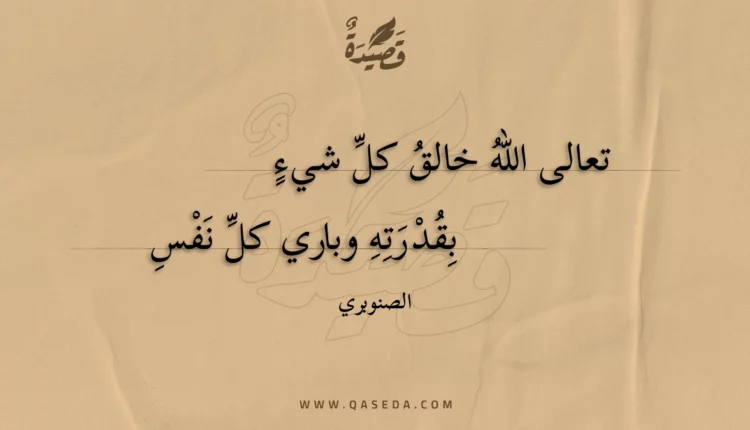 قَصِيدَةٌ
تعالى اللهُ خالقُ كلِّ شيءٍ
بِقُدْرَتِهِ وباري كلِّ نَفْسِ
الصنوبري
WWW.QASEDA.COM